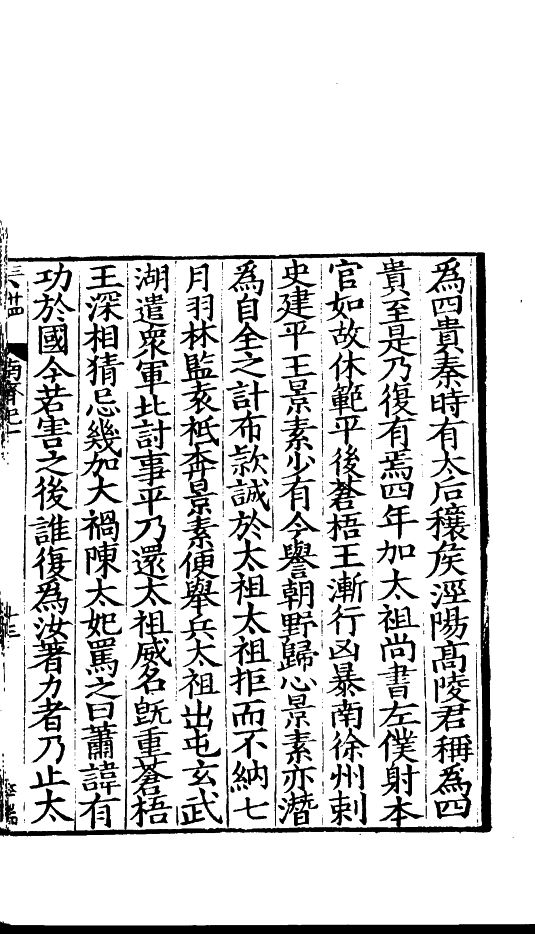 為四貴秦時有太后穰矦涇陽髙陵君稱為四
貴至是乃復有焉四年加太祖尚書左僕射本
官如故休範平後蒼梧王漸行凶暴南徐州刺
史建平王景素少有令譽朝野歸心景素亦潛
為自全之計布款誠於太祖太祖拒而不納七
月羽林監袁祗奔景素便舉兵太祖出屯玄武
湖遣衆軍北討事平乃還太祖威名旣重蒼梧
王深相猜忌幾加大禍陳太妃罵之曰蕭諱有
功於國今若害之後誰復為汝著力者乃止太
南齊紀一